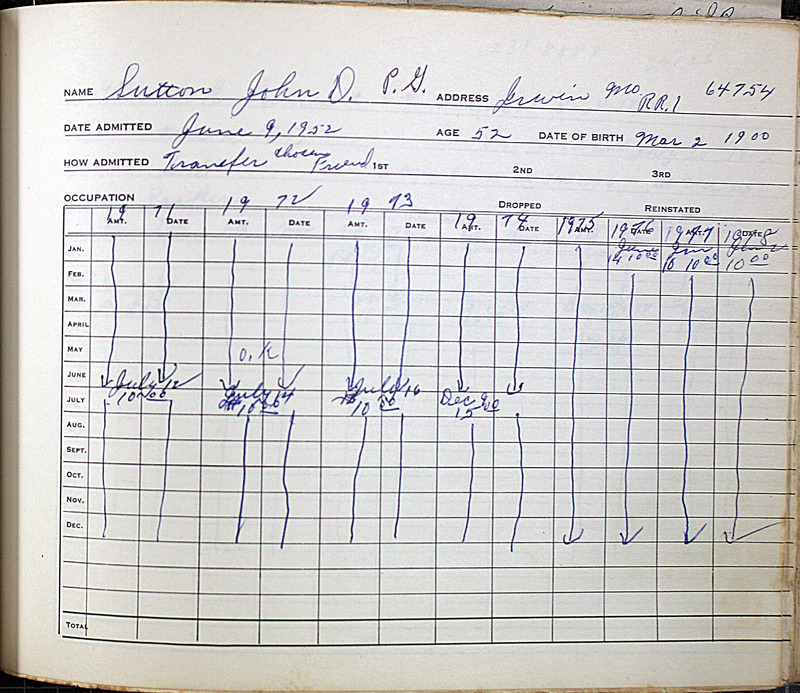 NAME Sutton John D. P.G. ADDRESS Irwin Mo. RR.1 64754
DATE ADMITTED June 9, 1952 AGE 52 DATE OF BIRTH Mar 2 1900
HOW ADMITTED Transfer chosen Friend 1ST 2ND 3RD
OCCUPATION DROPPED REINSTATED
19 71 19 72 19 73 19 74 1975 1976 1977 1978
AMT. DATE AMT. DATE AMT. DATE AMT. DATE AMT. DATE AMT. DATE
JAN. Jan 14 10 00 Jan 10 00 Jan 10 00
FEB.
MAR.
APRIL
MAY O.K
JUNE
JULY July 12 10.00 July 14 10 00 July 16 10 00 Dec 9 15 00
AUG.
SEPT.
OCT.
NOV.
DEC.
TOTAL